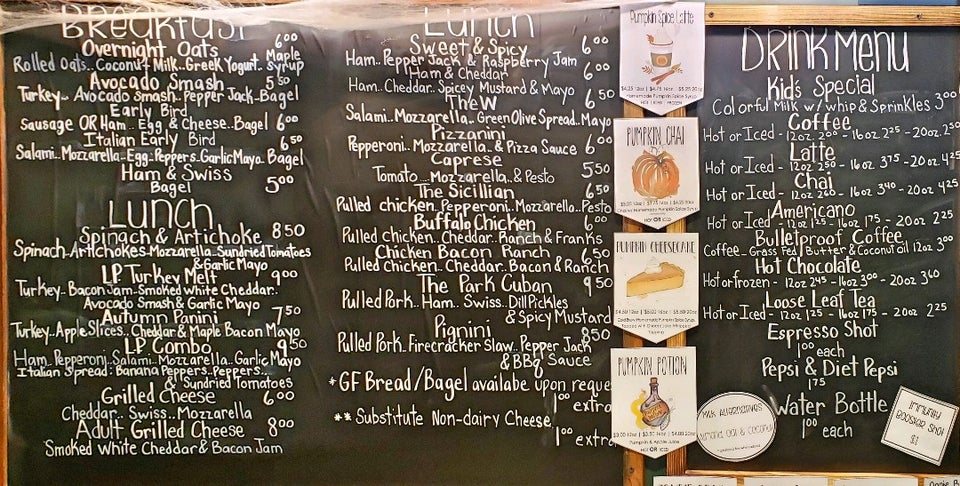 Breakfast
Overnight Oats 6.00
Rolled Oats.. Coconut Milk.. Greek Yogurt.. Maple Syrup
Avocado Smash 5.50
Turkey.. Avocado Smash.. Pepper Jack..Bagel
Early Bird
Sausage OR Ham.. Egg & Cheese..Bagel 6.00
Italian Early Bird 6.50
Salami..Mozzarella..Egg..Peppers..Garlic Mayo.. Bagel
Ham & Swiss
Bagel 5.00
Lunch
Spinach & Artichoke 8.50
Spinach..Artichokes..Mozzarella..Sundried Tomatoes
& Garlic Mayo
LP Turkey Melt 9.00
Turkey..Bacon Jam..Smoked White Cheddar..
Avocado Smash & Garlic Mayo
Autumn Panini 7.50
Turkey..Apple Slices..Cheddar & Maple Bacon Mayo
LP Combo 9.50
Ham..Pepperoni..Salami..Mozzarella..Garlic Mayo
Italian Spread: Banana Peppers..Peppers..
& Sundried Tomatoes
Grilled Cheese 6.00
Cheddar..Swiss..Mozzarella
Adult Grilled Cheese 8.00
Smoked White Cheddar & Bacon Jam
Lunch
Sweet & Spicy 6.00
Ham..Pepper Jack & Raspberry Jam
Ham & Cheddar 6.00
Ham..Cheddar..Spicey Mustard & Mayo
The W 6.50
Salami..Mozzarella..Green Olive Spread..Mayo
Pizzanini
Pepperoni..Mozzarella..& Pizza Sauce 6.00
Caprese
Tomato..Mozzarella..& Pesto 5.50
The Sicillian 6.50
Pulled chicken..Pepperoni..Mozzarella..Pesto
Buffalo Chicken 6.00
Pulled Chicken..Cheddar..Ranch & Franks
Chicken Bacon Ranch 6.50
Pulled Chicken..Cheddar..Bacon & Ranch
The Park Cuban 9.50
Pulled Pork..Ham..Swiss..Dill Pickles
& Spicy Mustard
Pignini 8.50
Pulled Pork..Firecracker Slaw..Pepper Jack
& BBQ Sauce
*GF Bread/Bagel availabe upon reque
1.00 extra
** Substitute Non-dairy Cheese
1.00 extra
Pumpkin Spice Latte
$4.25 12oz | $4.75 16oz | $5.25 20oz
Homemade Pumpkin Spice Syrup
HOT | ICED | FROZEN
PUMPKIN CHAI
HOT OR ICED
PUMPKIN CHEESECAKE
Cold Brew Homemade Pumpkin Spice Syrup
Topped with Cheesecake Whipped
Topping
PUMPKIN POTION
$3.00 12oz | $3.50 16oz | $4.00 20oz
Pumpkin & Apple Juice
HOT OR ICED
DRINK MENU
Kids Special
Colorful Milk w/ whip & Sprinkles 3.00
Coffee
Hot or Iced - 12oz 2.00 - 16oz 2.25 - 20oz 2.50
Latte
Hot or Iced - 12oz 2.50 - 16oz 3.75 - 20oz 4.25
Chai
Hot or Iced - 12oz 2.60 - 16oz 3.40 - 20oz 4.25
Americano
Hot or Iced - 12oz 1.25 - 16oz 1.75 - 20oz 2.25
Bulletproof Coffee
Coffee - Grass Fed Butter & Coconut Oil 12oz 3.00
Hot Chocolate
Hot or frozen - 12oz 2.45 - 16oz 3.00 - 20oz 3.60
Loose Leaf Tea
Hot or Iced - 12oz 1.25 - 16oz 1.75 - 20oz 2.25
Espresso Shot
1.00 each
Pepsi & Diet Pepsi
1.75
Water Bottle
1.00 each
MILK ALTERNATIVES
Almond Oat & Coconut
Immunity
Booster Shot
$1